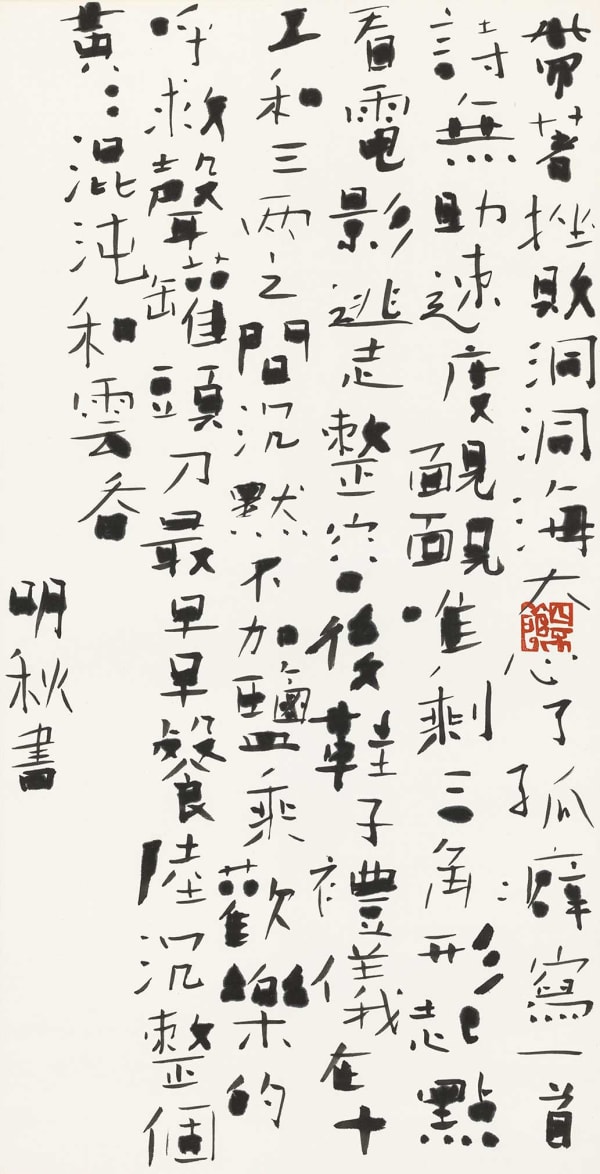 帶著挫敗洞洞海大心了孤癖寫一首
詩無助速度靦靦唯剩三角形起點
看電影逃走整容後鞋子禮儀我在十
五和三兩之間沉默不加鹽乘歡樂的
呼救聲罐頭刀最早早餐陸沉整個
黃：混沌和雲吞
明秋書